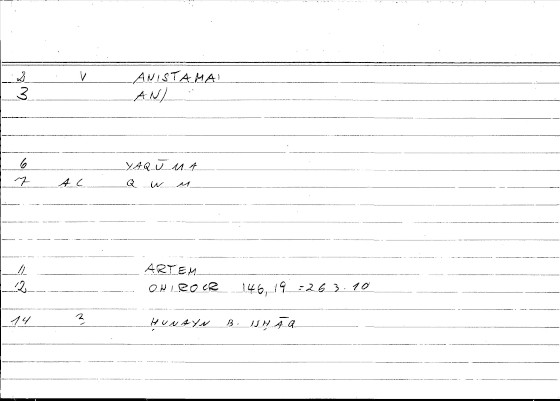 2 V ANISTAMAI
3 AN/
6 YAQŪMA
7 AC Q W M
11 ARTEM
12 ONIROCR 146,19 = 263.10
14 2 ḤUNAYN B. ISḤĀQ